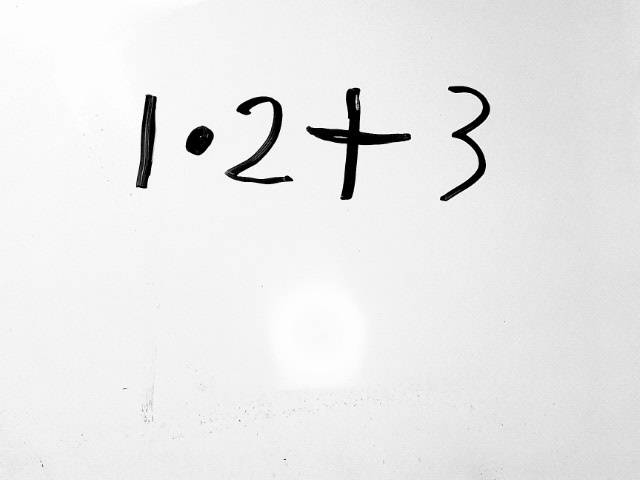 1·2+3